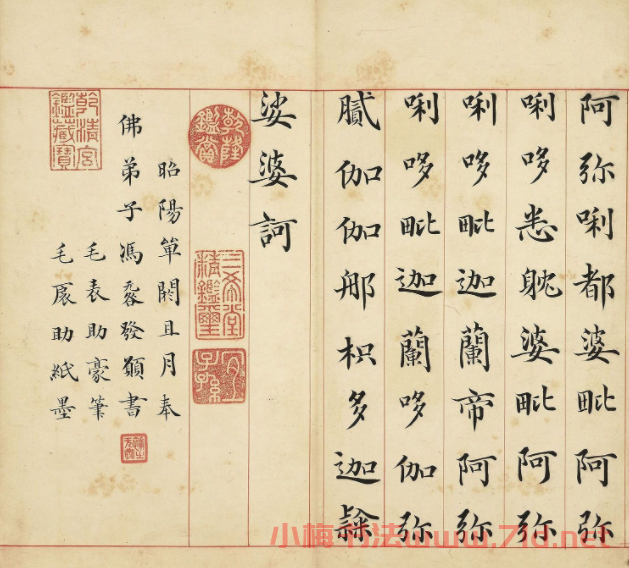 阿弥唎都婆毗阿弥
唎哆悉躭婆毗阿弥
唎哆毗迦蘭帝阿弥
唎哆毗迦蘭哆伽弥
膩伽伽那枳多迦隸
娑婆訶
乾隆鑑賞
三希堂精鑑璽
宜子孫
昭陽單閼且月奉
佛弟子馮發願書
毛表助豪筆
毛扆助紙墨
乾清宮鑑藏寶
小梅书法